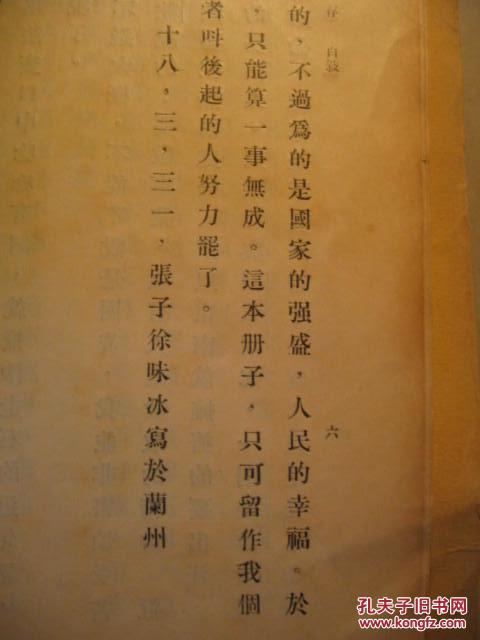 自敍
的，不過爲的是國家的强盛，人民的幸福。於
，只能算一事無成。這本册子，只可留作我個
者呌後起的人努力罷了。
十八，三，三一，張子徐味冰寫於蘭州
六
孔夫子旧书网
KONGFZ.COM